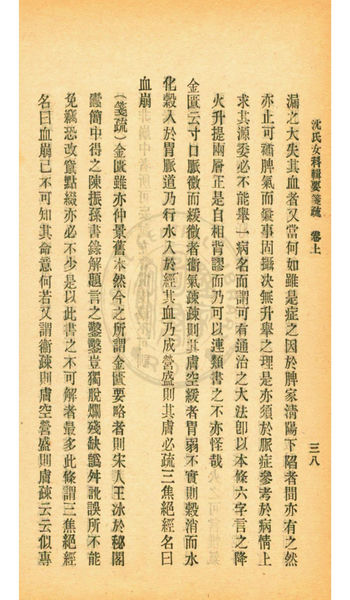 沈氏女科輯要箋疏 卷上
三八
漏之大失其血者又當何如雖是症之因於脾家清陽下陷者間亦有之然
亦止可補脾氣而兼事固攝決無升舉之理是亦須於脈症參考於病情上
求其源委必不能舉一病名而謂可有通治之大法卽以本條六字言之降
火升提兩層正是自相背謬而乃可以連類書之不亦怪哉
金匱云寸口脈微而緩微者衞氣疎疎則其膚空緩者胃弱不實則穀消而水
化穀入於胃脈道乃行水入於經其血乃成營盛則其膚必疏三焦絕經名曰
血崩
(箋疏)金匱雖亦仲景舊本然今之所謂金匱要略者則宋人王洙於秘閣
蠹簡中得之陳振孫書錄解題言之鑿鑿豈獨脫爛殘缺譌舛訛誤所不能
免竊恐改竄點綴亦必不少是以此書之不可解者最多此條謂三焦絕經
名曰血崩已不可知其命意何若又謂衞疎則膚空營盛則膚疎云云似專